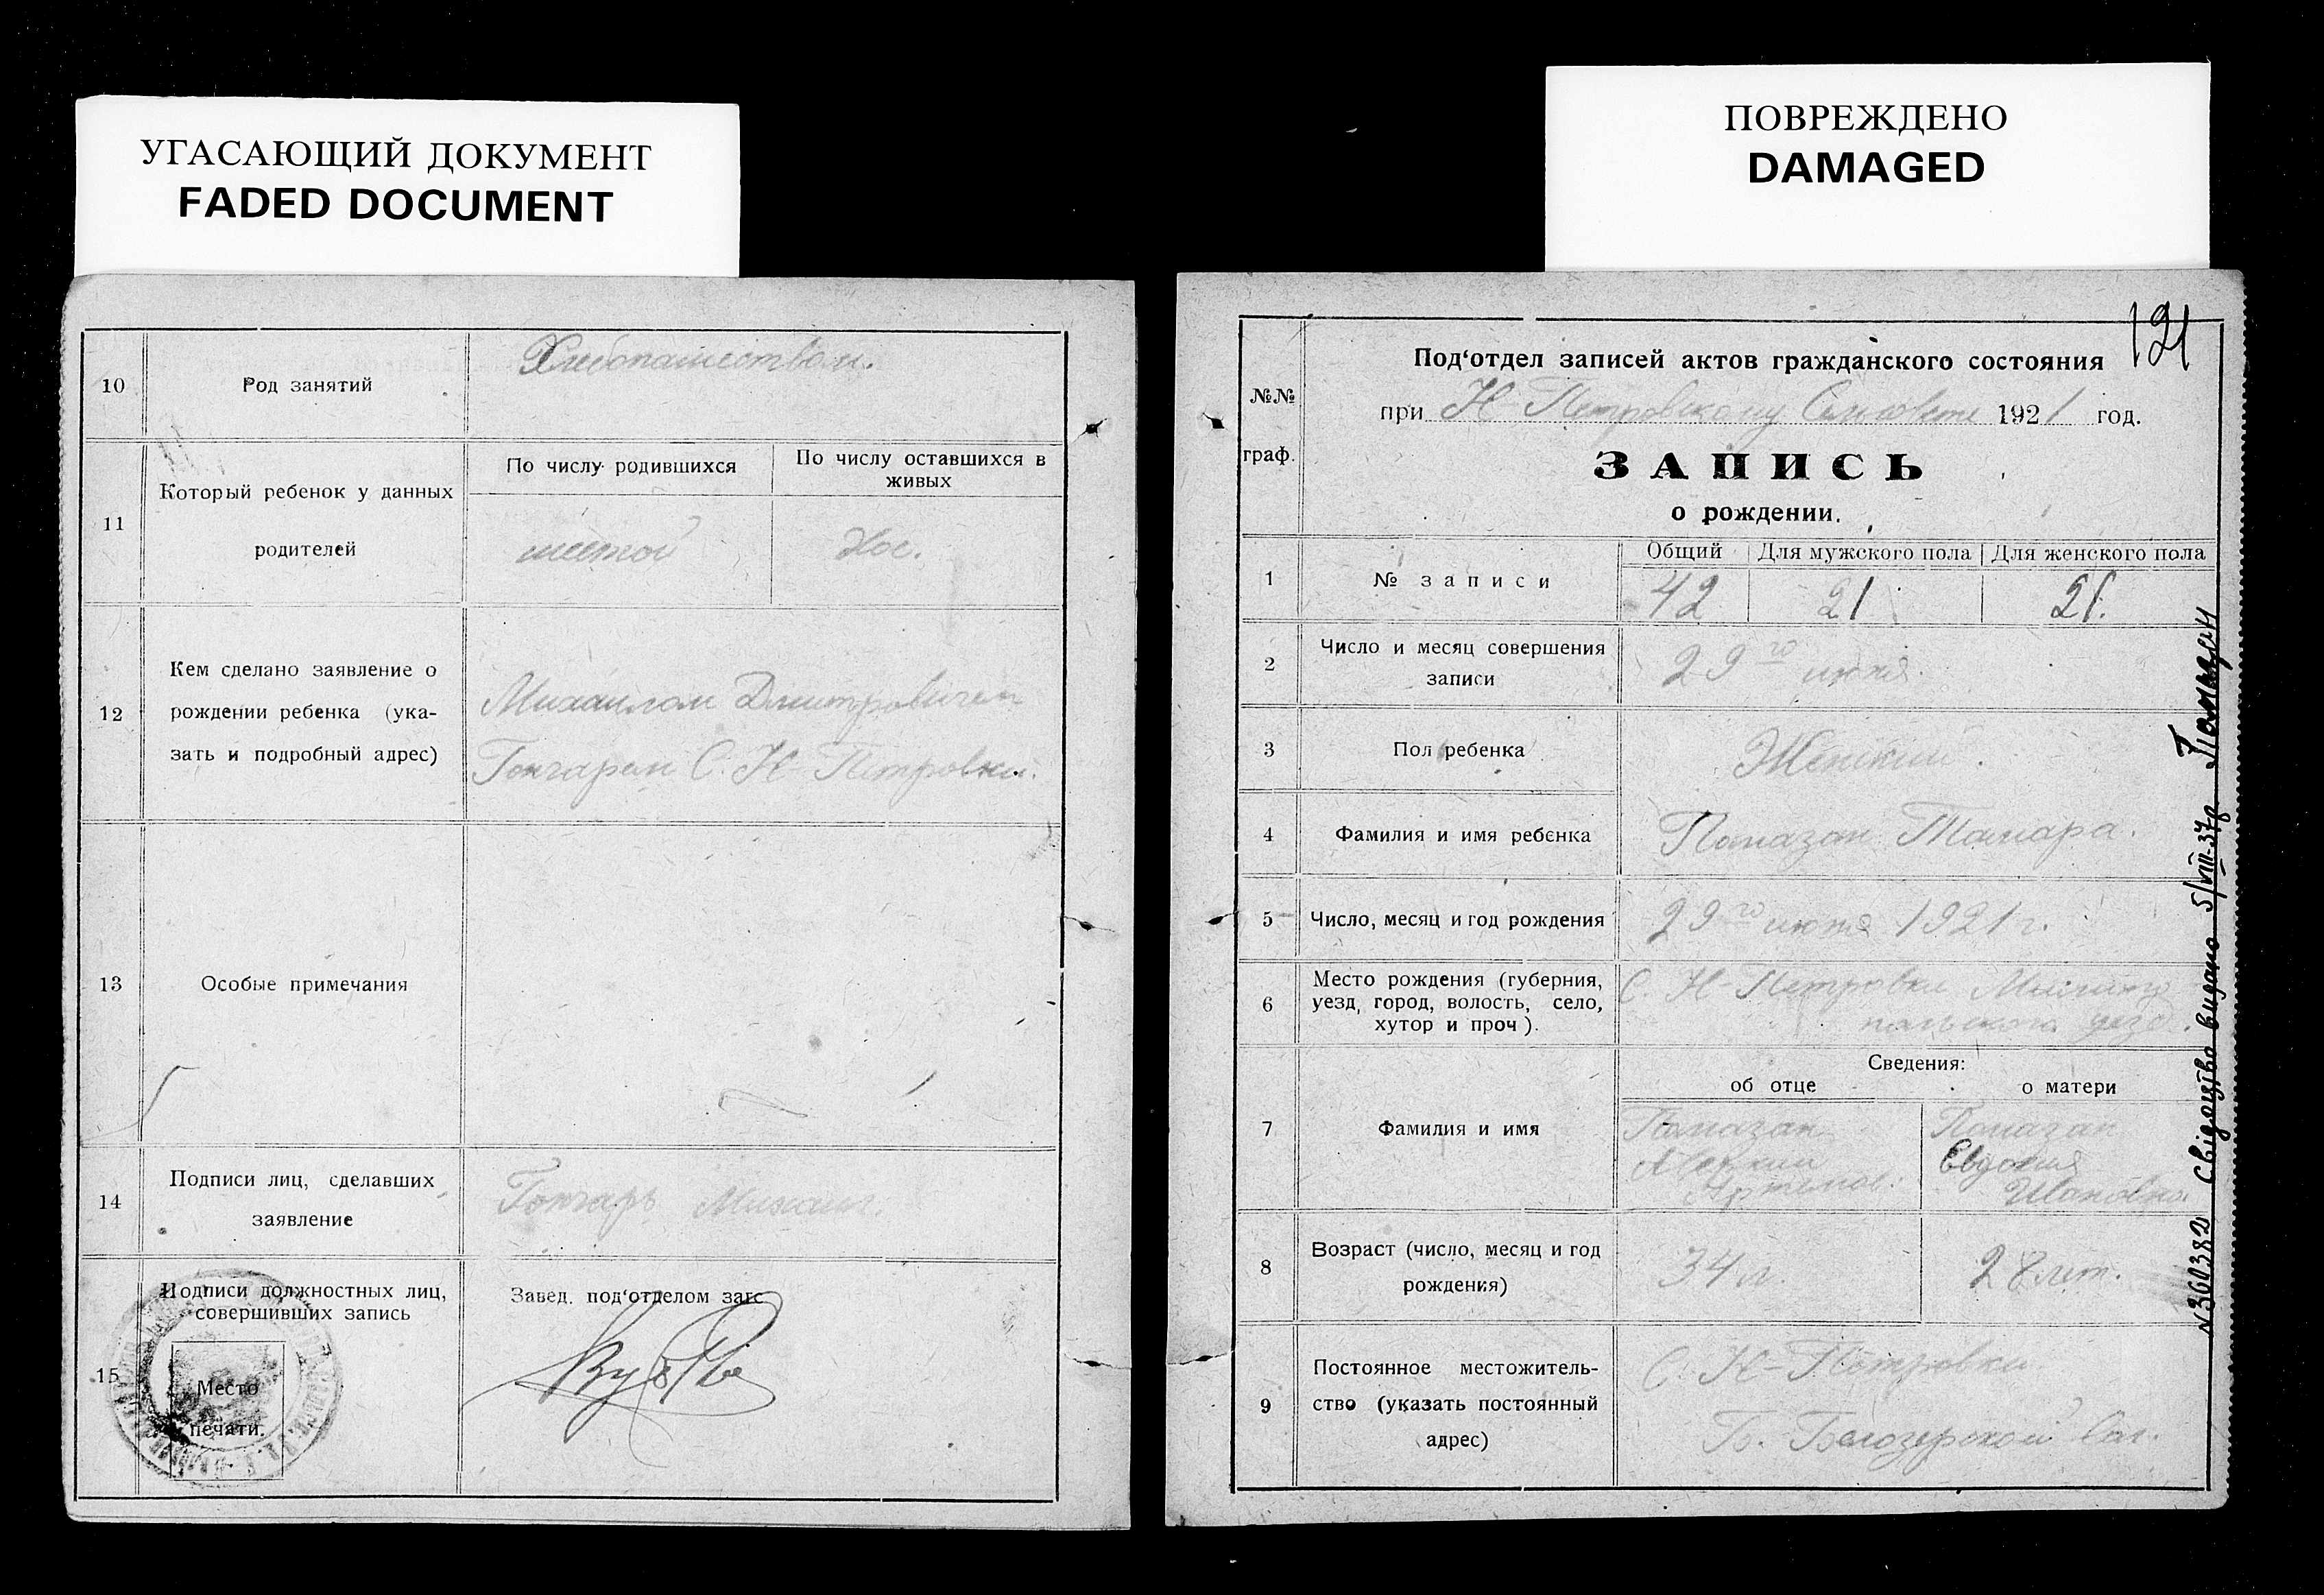 УГАСАЮЩИЙ ДОКУМЕНТ
FADED DOCUMENT
10
Род занятий
Хлебопашеством.
11
Который ребенок у данных
родителей
По числу родившихся
По числу оставшихся в
живых
шестой
12
Кем сделано заявление о
рождении ребенка (ука-
зать и подробный адрес)
Михаилом Дмитровичем
Гончарем С. Н-Петровки.
13
Особые примечания
14
Подписи лиц, сделавших
заявление
Гончарь Михаил.
15
Подписи должностных лиц,
совершивших запись
Место
печати.
Завед. под'отделом загс
ПОВРЕЖДЕНО
DAMAGED
121
№№
граф.
Под'отдел записей актов гражданского состояния
при Н-Петровскому Сельсовете 1921 год.
ЗАПИСЬ
о рождении.
1
№ записи
Общий Для мужского пола Для женского пола
42 21 21.
2
Число и месяц совершения
записи
29го июня.
3
Пол ребенка
Женский.
4
Фамилия и имя ребенка
Помазан Тамара.
5
Число, месяц и год рождения
29го июня 1921 г.
6
Место рождения (губерния,
уезд, город, волость, село,
хутор и проч).
С. Н-Петровка Мелито
польского уезд.
Сведения:
об отце
о матери
7
Фамилия и имя
Помазан
Артемов.
Помазан
Евдокия
Ивановна
8
Возраст (число, месяц и год
рождения)
34 л.
28 лет.
9
Постоянное местожитель-
ство (указать постоянный
адрес)
С. Н-Петровки
Б. Белозерской вол.
№ 360382 Свідоцтво видано 5/VIII-37р Помазан